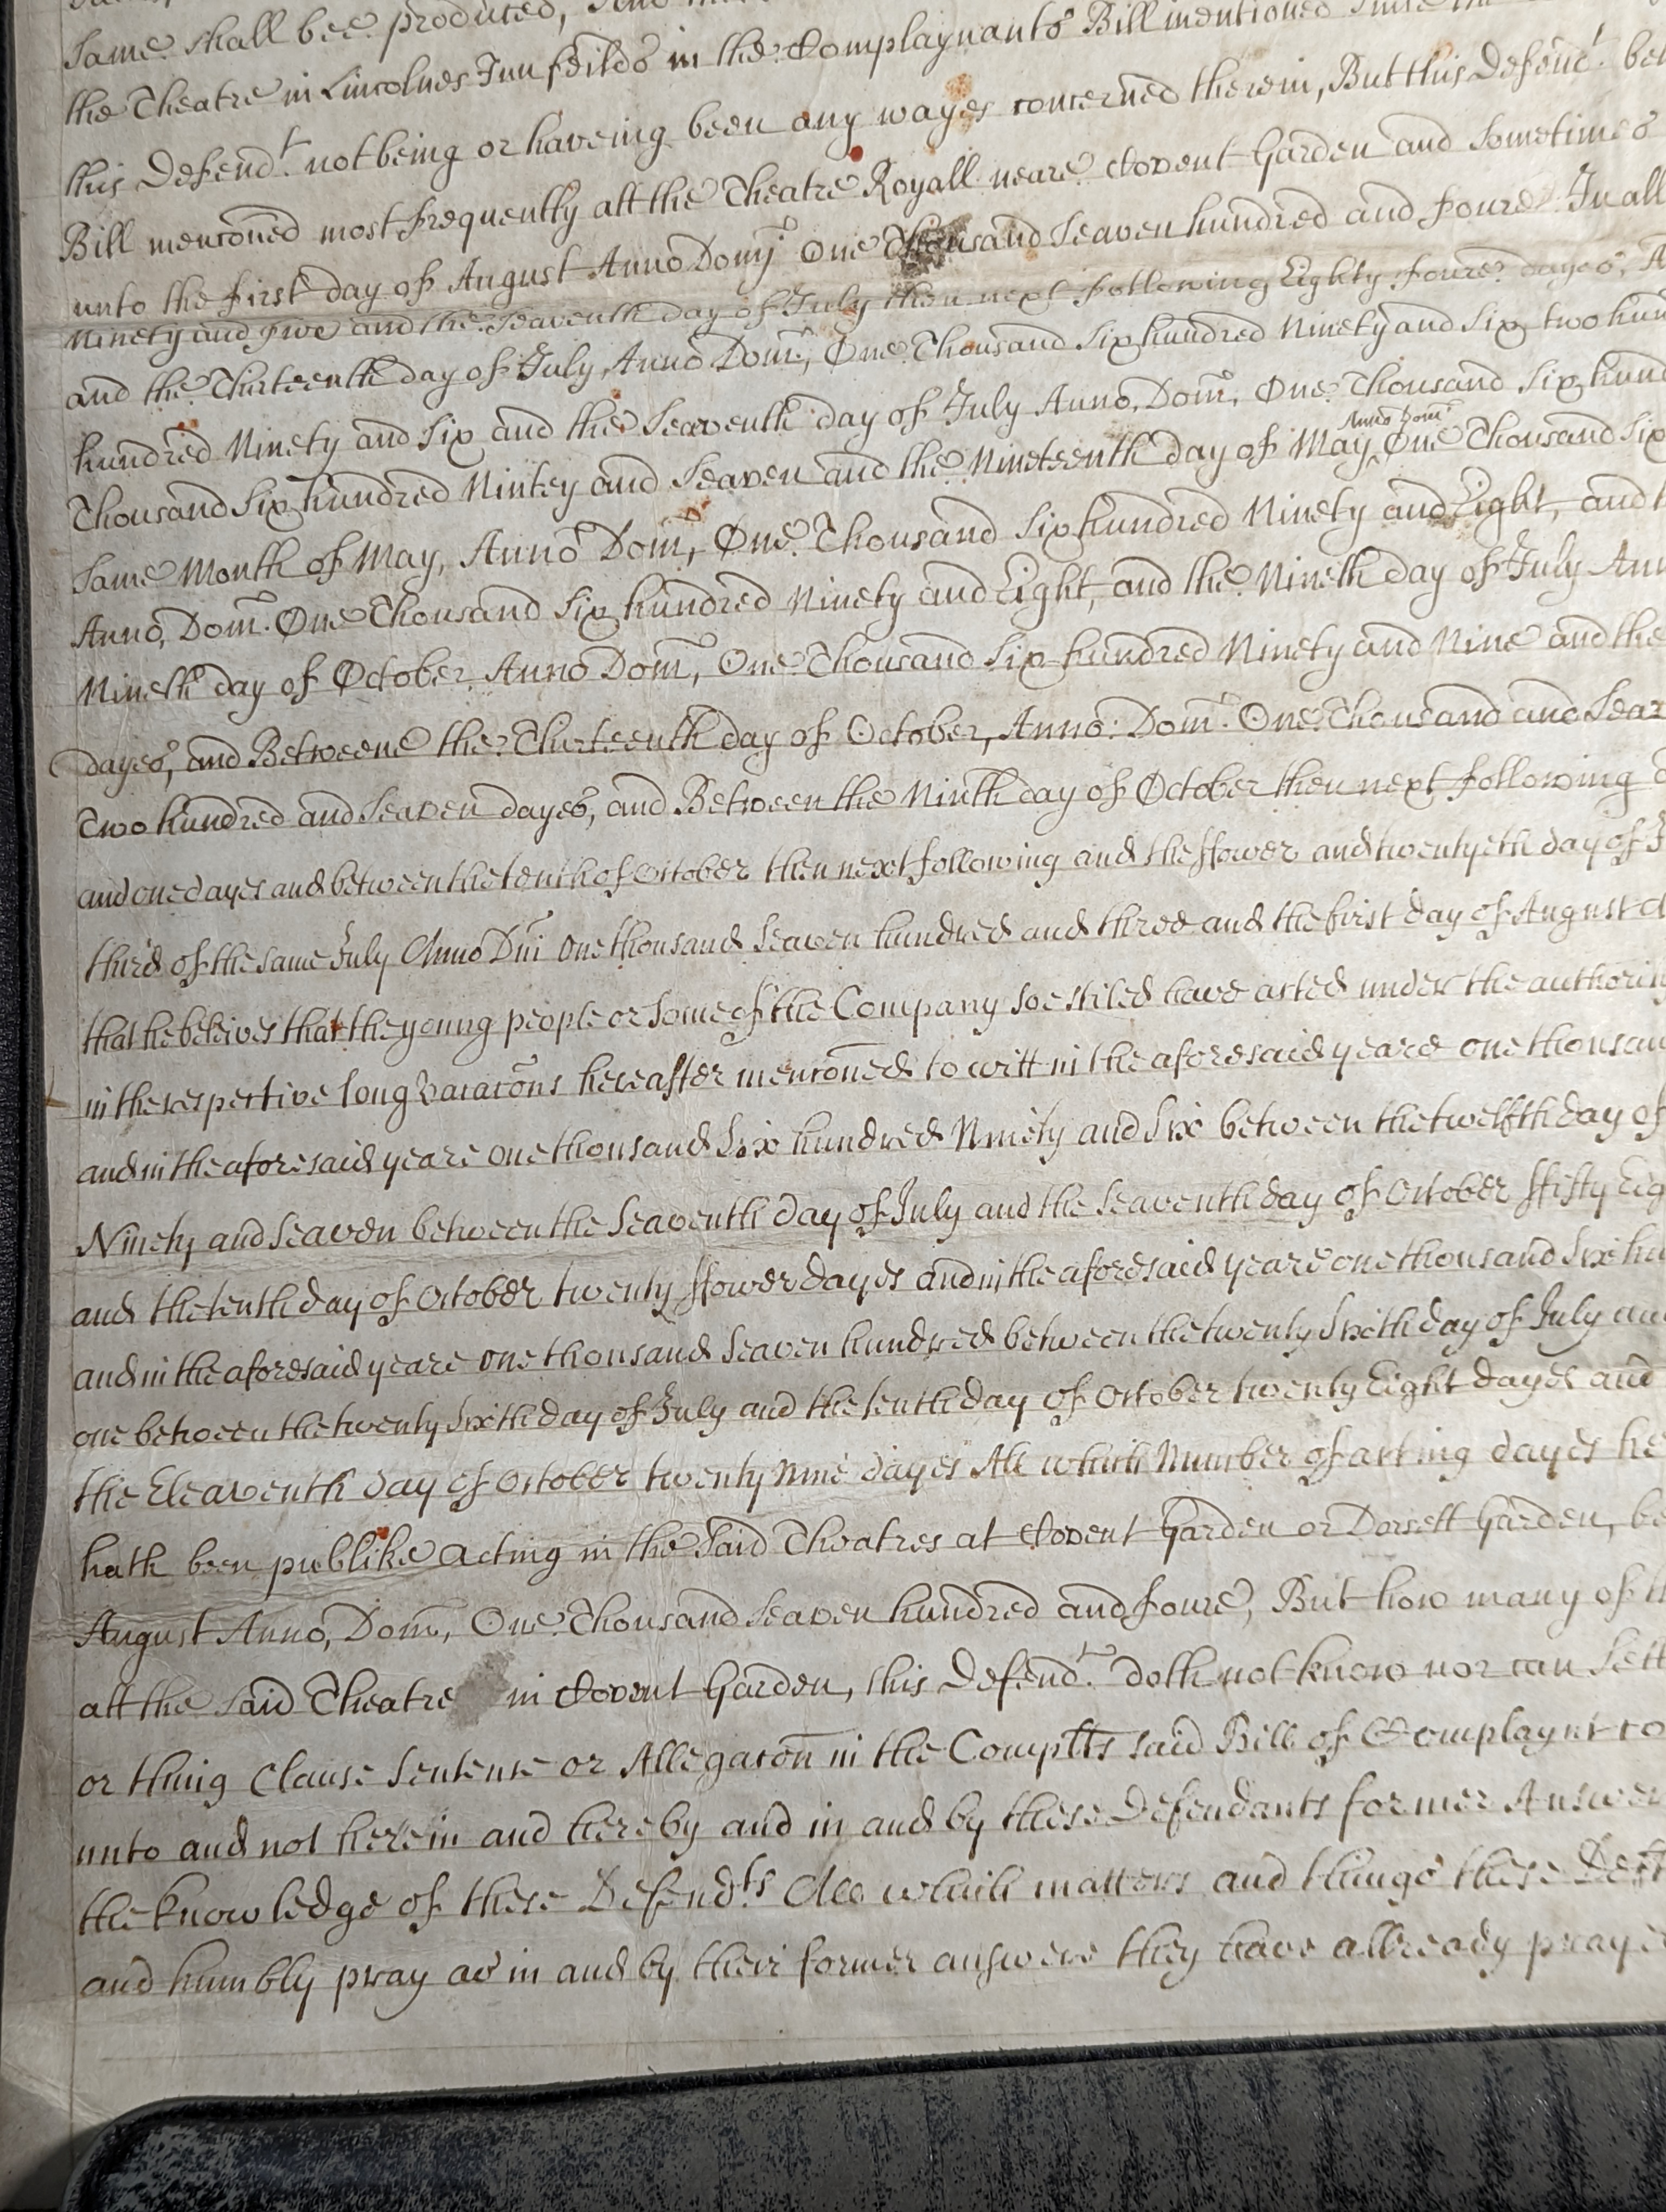 Same shall bee produced,
the Theatre in Lincolnes Inn feilds in the Complaynants Bill mentioned
this Defendt. not being or haveing been any wayes concerned therein, But this Defendt. be
Bill menconed most frequently att the Theatre Royall neare Covent Garden and Sometimes
unto the first day of August Anno Domj One Thousand Seaven hundred and foure. In all
Ninety and Five and the Seaventh day of July then next following Eighty foure dayes, A
and the Thirteenth day of July, Anno Dom, One Thousand Six hundred Ninety and Six two hun
hundred Ninety and Six and the Seaventh day of July Anno, Dom, One Thousand Six hund
Thousand Six hundred Nintey and Seaven and the Nineteenth day of May ^Anno Dom One Thousand Six
Same Month of May, Anno Dom, One Thousand Six hundred Ninety and Eight, and t
Anno, Dom. One Thousand Six hundred Ninety and Eight, and the Nineth day of July Ann
Nineth day of October Anno Dom, One Thousand Six hundred Ninety and Nine and the
dayes, and Betweene the Thirteenth day of October, Anno: Dom. One Thousand and Seav
Two hundred and Seaven dayes, and Between the Ninth day of October then next following
and one dayes and between the tenth of October then next following and the ffower and twentyeth day of J
third of the same July Anno Dni One thousand Seaven hundred and three and the first day of August
that he beleives that the young people or some of the Company soe stiled have acted under the authority
in the respective long Vacacons hereafter menconed to witt in the aforesaid yeare one thousan
and in the aforesaid yeare one thousand Six hundred Ninety and Six between the twelfth day of
Ninety and Seaven between the Seaventh day of July and the Seaventh day of October ffifty Eig
and the tenth day of October twenty ffower dayes and in the aforesaid yeare one thousand Six hu
and in the aforesaid yeare one thousand Seaven hundred between the twenty Sixth day of July an
one between the twenty Sixth day of July and the tenth day of October twenty Eight dayes and
the Eleaventh day of October twenty Nine dayes All which Number of acting dayes he
hath been publike Acting in the Said Theatres at Covent Garden or Dorsett Garden, be
August Anno, Dom, One Thousand Seaven hundred and foure, But how many of th
att the Said Theatre in Covent Garden, this Defendt. doth not know nor can Sett
or thing Clause Sentence or Allegacon in the Complts said Bill of Complaynt co
unto and not herein and hereby and in and by these Defendants former Answer
the knowledge of these Defendts. All which matters and things these Deft
and humbly pray as in and by their former answere they have allready praye